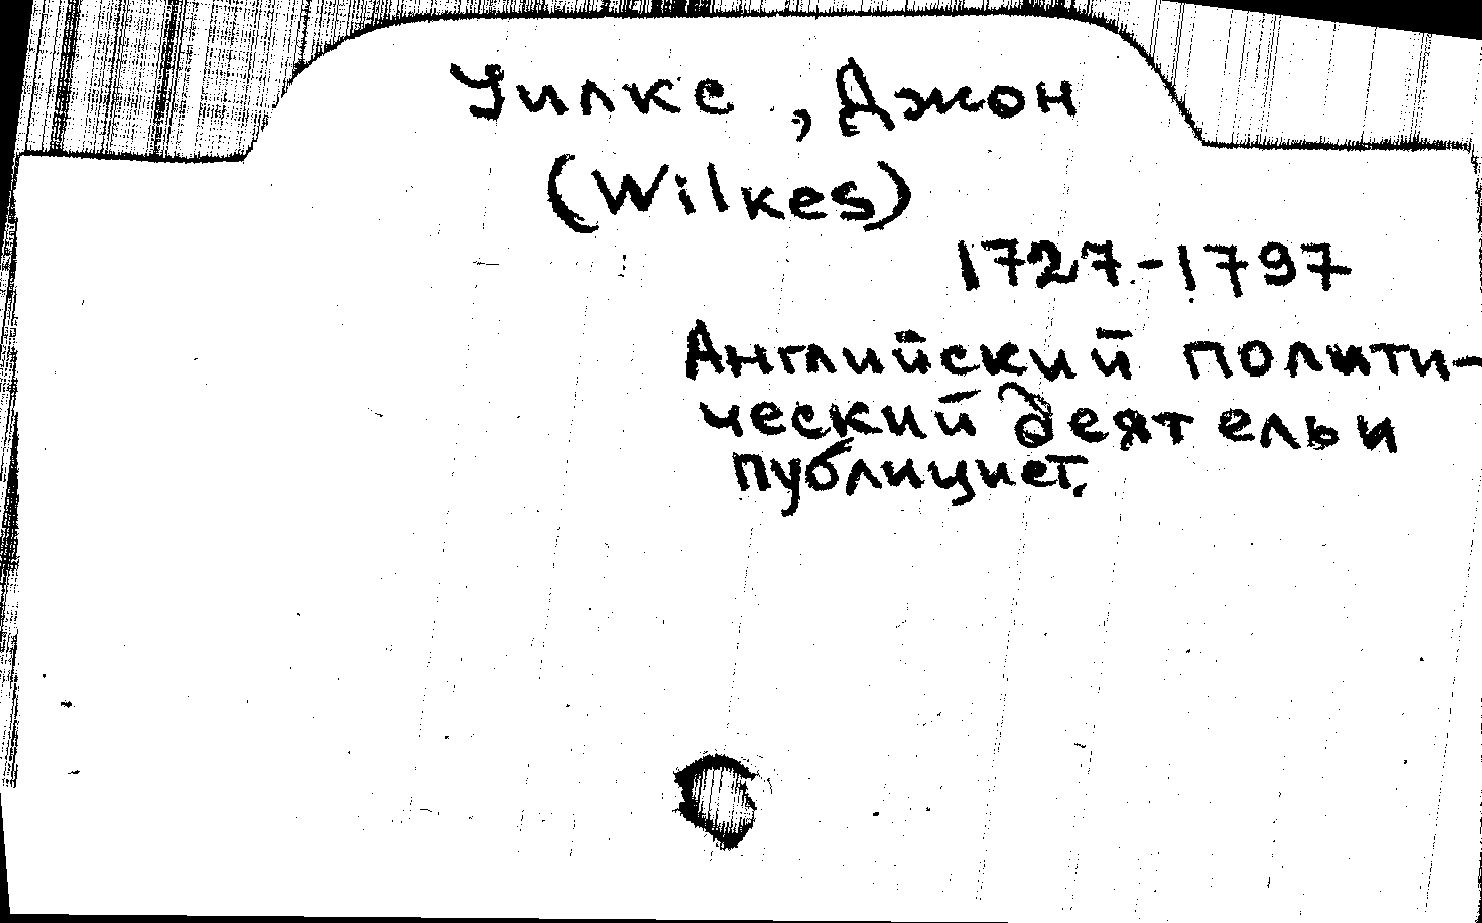 Уилкс, Джон
(Wilkes)
1727-1797
Английский полити-
ческий деятель и
публицист.